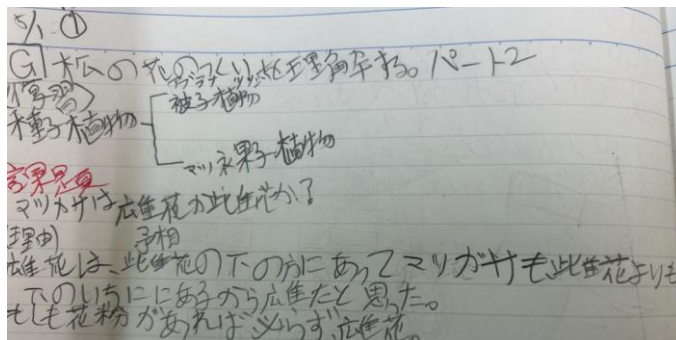 5/1 ①
G 松の花のつくりを理解する。パート2
アブラナ ツツジ
(復習) 被子植物
種子植物
マツ 裸子植物
課題
マツカサは雄花か雌花か?
(理由) 予想
雄花は、雌花の下の方にあってマツガサも、雌花よりも
下のいちににあるから雄だと思った。
もしも花粉があれば必らず雄花。